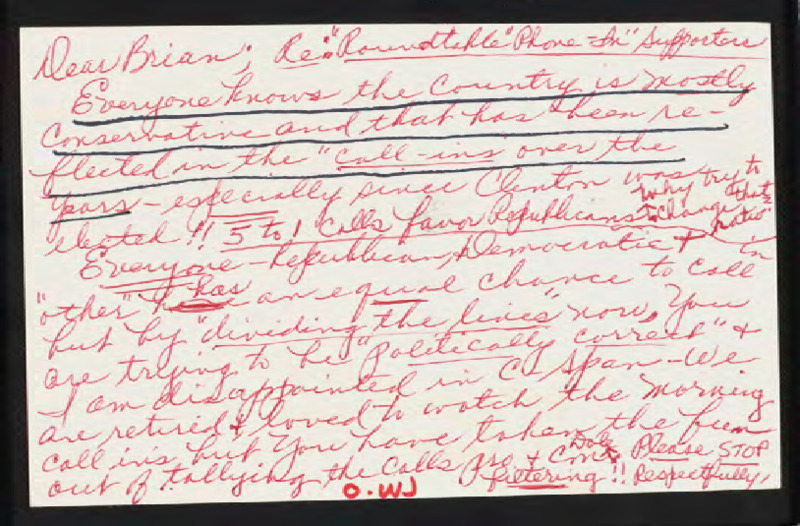 Dear Brian; Re: "Roundtable" Phone-In" Supporters
Everyone knows the Country is mostly
Conservative and that has been re-
flected in the "call-ins over the
years - especially since Clinton was
elected!! 5 to 1 calls favor Republicans
why try to
change that
ratio"
Everyone - Republican, Democratic &
"other" has an equal chance to call in
but by "dividing the lines" now, You
are trying to be "Politically correct" &
I am disappointed in C Span - We
are retired & loved to watch the morning
call ins but you have taken the fun
out of tallying the calls pro & Con. Please STOP
filtering!! Respectfully,
O. WJ